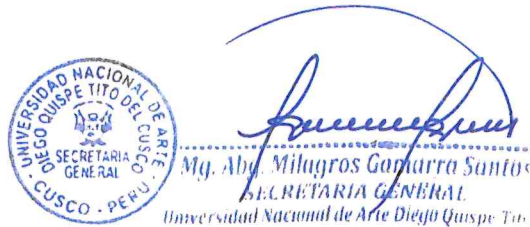 UNIVERSIDAD NACIONAL DE ARTE
DIEGO QUISPE TITO DEL CUSCO
SECRETARIA
GENERAL
CUSCO - PERU
Mg. Abg. Milagros Gamarra Santos
SECRETARIA GENERAL
Universidad Nacional de Arte Diego Quispe